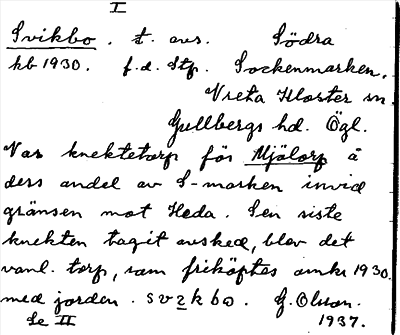 I
Svikbo. t. avs. Södra
kb 1930. f.d. Stp. Sockenmarken.
Vreta Kloster sn.
Gullbergs hd. Ögl.
Var knektetorp för Mjölorp å
ders andel av S-marken invid
gränsen mot Heda. Sen siste
knekten tagit avsked, blev det
vanl. torp, som friköptes omkr 1930.
med jorden. svzkbo. G. Olsson.
Se II 1937.